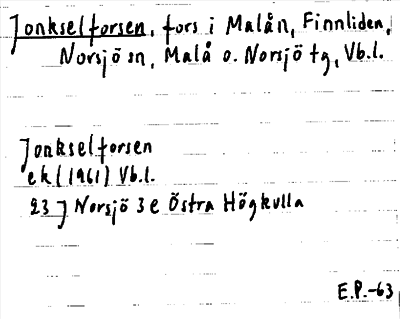 Jonkselforsen, fors i Malån, Finnliden,
Norsjö sn, Malå o. Norsjö tg, Vb.l.
Jonkselforsen
ek (1961) Vb.l.
23 J Norsjö 3 e Östra Högkulla
E.P.-63